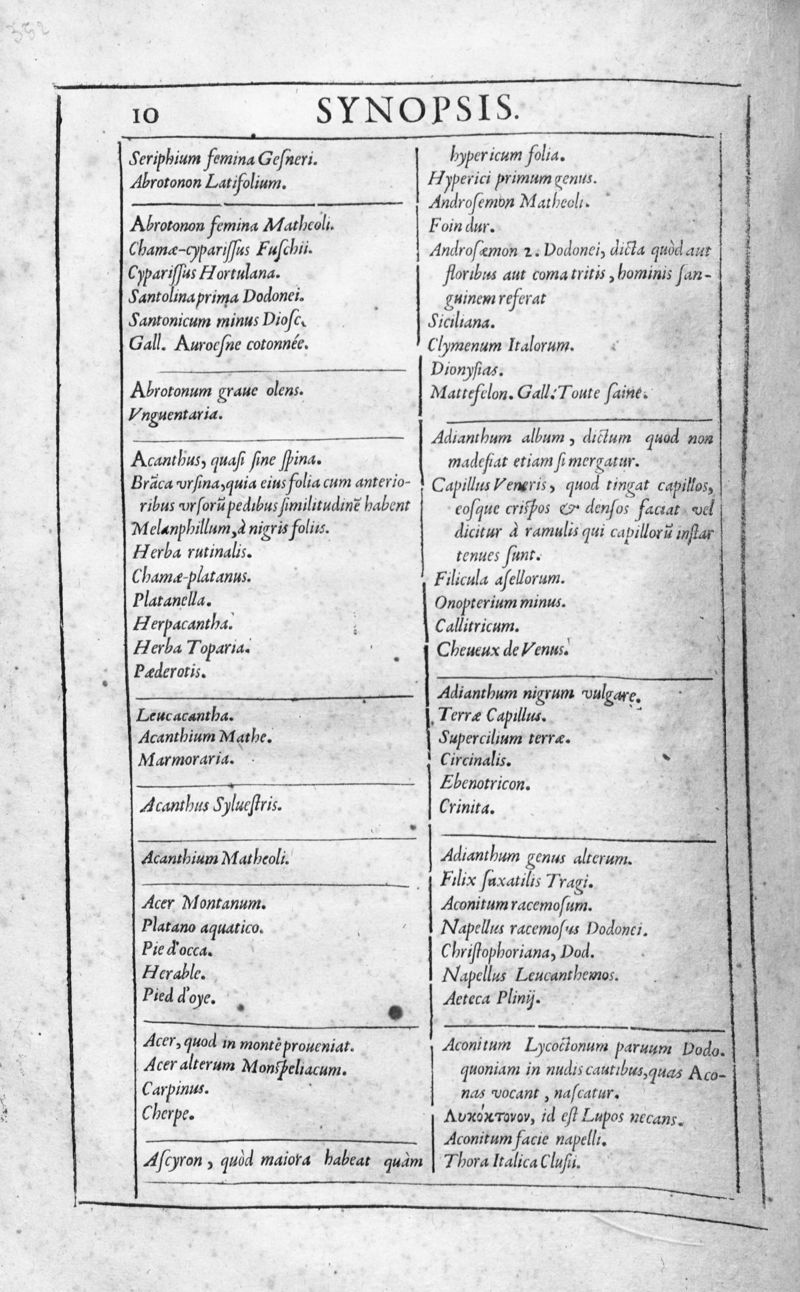 332
10
SYNOPSIS.
Seriphium femina Geſneri.
Abrotonon Latifolium.
Abrotonon femina Matheoli.
Chamæ-cypariſſus Fuſchii.
Cypariſſus Hortulana.
Santolina prima Dodonei.
Santonicum minus Dioſc.
Gall. Auroeſne cotonnée.
Abrotonum graue olens.
Vnguentaria.
Acanthus, quaſi ſine ſpina.
Brāca vrſina, quia eius folia cum anterio-
ribus vrſorū pedibus ſimilitudinē habent
Melanphillum, à nigris foliis.
Herba rutinalis.
Chamæ-platanus.
Platanella.
Herpacantha.
Herba Toparia.
Pæderotis.
Leucacantha.
Acanthium Mathe.
Marmoraria.
Acanthus Sylueſtris.
Acanthium Matheoli.
Acer Montanum.
Platano aquatico.
Pie d'occa.
Herable.
Pied d'oye.
Acer, quod in montē proueniat.
Acer alterum Monſpeliacum.
Carpinus.
Cherpe.
Aſcyron, quòd maiora habeat quàm
hypericum folia.
Hyperici primum genus.
Androſemon Matheoli.
Foin dur.
Androſæmon 2. Dodonei, dicta quòd aut
floribus aut coma tritis, hominis ſan-
guinem referat
Siciliana.
Clymenum Italorum.
Dionyſias.
Matteſelon. Gall. Toute ſaine.
Adianthum album, dictum quod non
madefiat etiam ſi mergatur.
Capillus Veneris, quod tingat capillos,
eoſque criſpos & denſos faciat vel
dicitur à ramulis qui capillorū inſtar
tenues ſunt.
Filicula aſellorum.
Onopterium minus.
Callitricum.
Cheueux de Venus.
Adianthum nigrum vulgare.
Terræ Capillus.
Supercilium terræ.
Circinalis.
Ebenotricon.
Crinita.
Adianthum genus alterum.
Filix ſaxatilis Tragi.
Aconitum racemoſum.
Napellus racemoſus Dodonei.
Chriſtophoriana, Dod.
Napellus Leucanthemos.
Aeteca Plinij.
Aconitum Lycoctonum paruum Dodo.
quoniam in nudis cautibus, quas Aco-
nas vocant, naſcatur.
Λυκόκτονον, id eſt Lupos necans.
Aconitum facie napelli.
Thora Italica Cluſii.